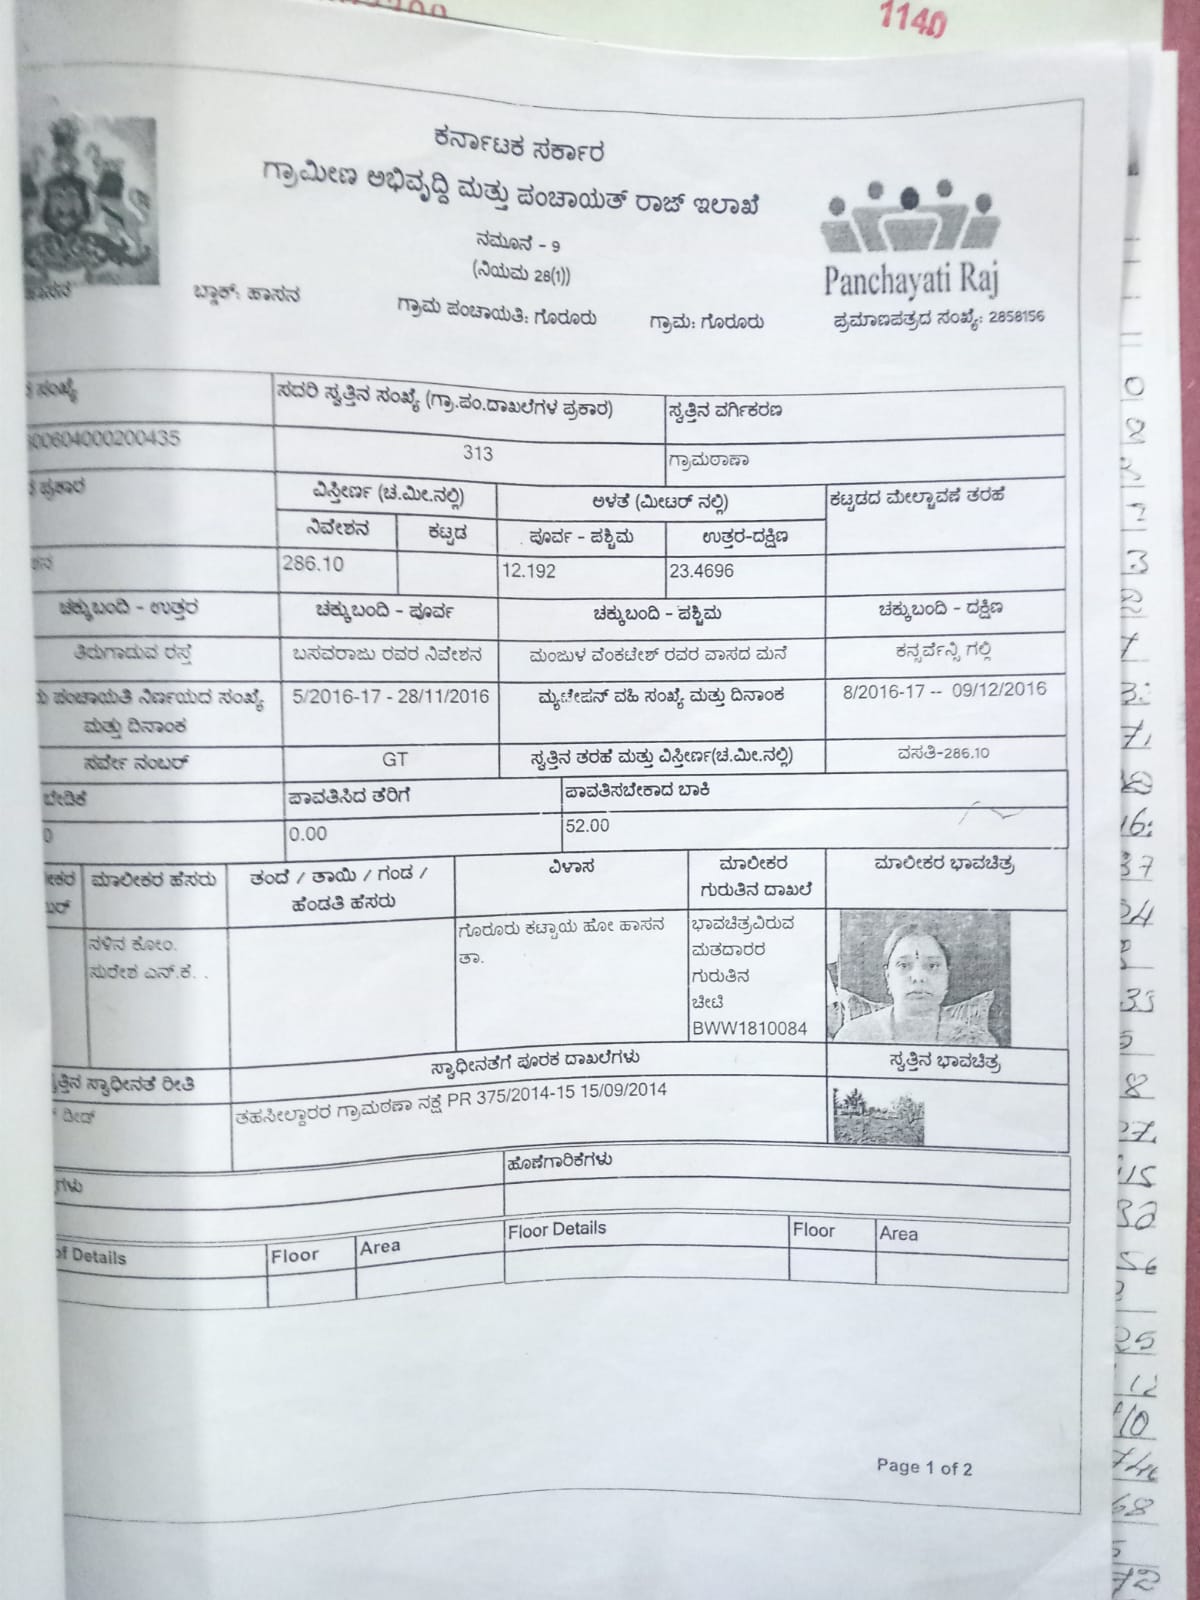 1140
ಕರ್ನಾಟಕ ಸರ್ಕಾರ
ಗ್ರಾಮೀಣ ಅಭಿವೃದ್ಧಿ ಮತ್ತು ಪಂಚಾಯತ್ ರಾಜ್ ಇಲಾಖೆ
ನಮೂನೆ - 9
(ನಿಯಮ 28(1))
Panchayati Raj
ಹಾಸನ ಬ್ಲಾಕ್: ಹಾಸನ ಗ್ರಾಮ ಪಂಚಾಯತಿ: ಗೊರೂರು ಗ್ರಾಮ: ಗೊರೂರು ಪ್ರಮಾಣಪತ್ರದ ಸಂಖ್ಯೆ: 2858156
ಸಂಖ್ಯೆ ಸದರಿ ಸ್ವತ್ತಿನ ಸಂಖ್ಯೆ (ಗ್ರಾ.ಪಂ.ದಾಖಲೆಗಳ ಪ್ರಕಾರ) ಸ್ವತ್ತಿನ ವರ್ಗೀಕರಣ
00604000200435 313 ಗ್ರಾಮಠಾಣಾ
ಪ್ರಕಾರ ವಿಸ್ತೀರ್ಣ (ಚ.ಮೀ.ನಲ್ಲಿ) ಅಳತೆ (ಮೀಟರ್ ನಲ್ಲಿ) ಕಟ್ಟಡದ ಮೇಲ್ಚಾವಣೆ ತರಹೆ
ನಿವೇಶನ ಕಟ್ಟಡ ಪೂರ್ವ - ಪಶ್ಚಿಮ ಉತ್ತರ-ದಕ್ಷಿಣ
286.10 12.192 23.4696
ಚಕ್ಕುಬಂದಿ - ಉತ್ತರ ಚಕ್ಕುಬಂದಿ - ಪೂರ್ವ ಚಕ್ಕುಬಂದಿ - ಪಶ್ಚಿಮ ಚಕ್ಕುಬಂದಿ - ದಕ್ಷಿಣ
ತಿರುಗಾಡುವ ರಸ್ತೆ ಬಸವರಾಜು ರವರ ನಿವೇಶನ ಮಂಜುಳ ವೆಂಕಟೇಶ್ ರವರ ವಾಸದ ಮನೆ ಕನ್ಸರ್ವೆನ್ಸಿ ಗಲ್ಲಿ
ಪಂಚಾಯತಿ ನಿರ್ಣಯದ ಸಂಖ್ಯೆ 5/2016-17 - 28/11/2016 ಮ್ಯುಟೇಷನ್ ವಹಿ ಸಂಖ್ಯೆ ಮತ್ತು ದಿನಾಂಕ 8/2016-17 -- 09/12/2016
ಮತ್ತು ದಿನಾಂಕ
ಸರ್ವೆ ನಂಬರ್ GT ಸ್ವತ್ತಿನ ತರಹೆ ಮತ್ತು ವಿಸ್ತೀರ್ಣ(ಚ.ಮೀ.ನಲ್ಲಿ) ವಸತಿ-286.10
ಬೇಡಿಕೆ ಪಾವತಿಸಿದ ತೆರಿಗೆ ಪಾವತಿಸಬೇಕಾದ ಬಾಕಿ
0 0.00 52.00
ಮಾಲೀಕರ ಹೆಸರು ತಂದೆ / ತಾಯಿ / ಗಂಡ / ವಿಳಾಸ ಮಾಲೀಕರ ಮಾಲೀಕರ ಭಾವಚಿತ್ರ
ಹೆಂಡತಿ ಹೆಸರು ಗುರುತಿನ ದಾಖಲೆ
ನಳಿನ ಕೋಂ. ಗೊರೂರು ಕಟ್ಟಾಯ ಹೋ ಹಾಸನ ಭಾವಚಿತ್ರವಿರುವ
ಸುರೇಶ ಎನ್.ಕೆ. . ತಾ. ಮತದಾರರ
ಗುರುತಿನ
ಚೀಟಿ
BWW1810084
ಸ್ವಾಧೀನತೆ ರೀತಿ ಸ್ವಾಧೀನತೆಗೆ ಪೂರಕ ದಾಖಲೆಗಳು ಸ್ವತ್ತಿನ ಭಾವಚಿತ್ರ
ಡೀಡ್ ತಹಸೀಲ್ದಾರರ ಗ್ರಾಮಠಣಾ ನಕ್ಷೆ PR 375/2014-15 15/09/2014
ಗಳು ಹೊಣೆಗಾರಿಕೆಗಳು
of Details Floor Area Floor Details Floor Area
Page 1 of 2